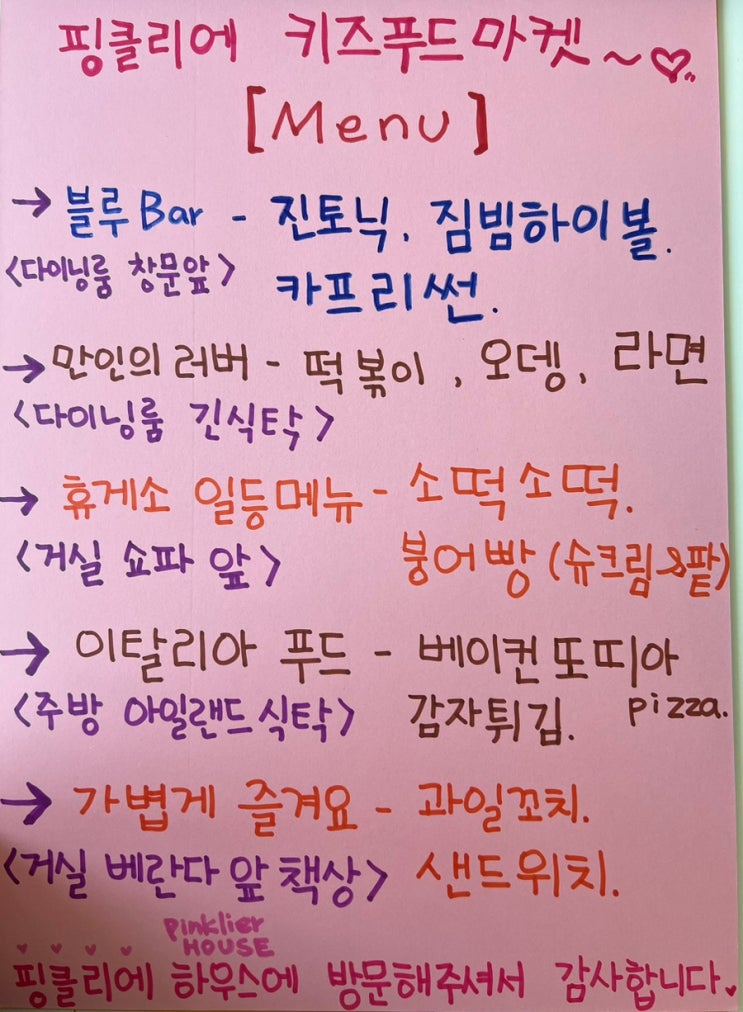 핑클리에 키즈푸드마켓~♡..
[Menu]
→ 블루Bar - 진토닉. 짐빔하이볼.
<다이닝룸 창문앞> 카프리썬.
→ 만인의 러버 - 떡볶이, 오뎅, 라면
<다이닝룸 긴식탁>
→ 휴게소 일등메뉴 - 소떡소떡.
<거실 쇼파 앞> 붕어빵 (슈크림&팥)
→ 이탈리아 푸드 - 베이컨또띠아
<주방 아일랜드식탁> 감자튀김. pizza.
→ 가볍게 즐겨요 - 과일꼬치.
<거실 베란다 앞 책상> 샌드위치.
Pinklier
HOUSE
핑클리에 하우스에 방문해주셔서 감사합니다.